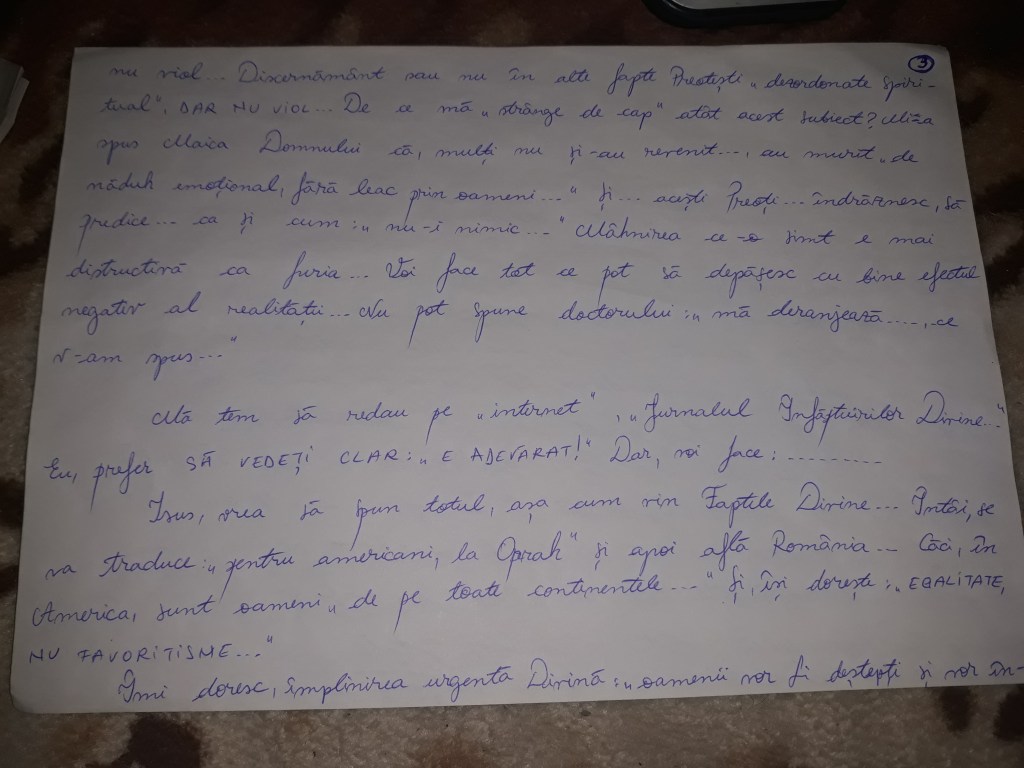 3
nu viol... Discernământ sau nu în alte fapte Preotești „dezordonate spiri-
tual", DAR NU VIOL... De ce mă „strânge de cap" atât acest subiect? Mi-a
spus Maica Domnului că, mulți nu și-au revenit..., au murit „de
năduh emoțional, fără leac prin oameni..." Și... acești Preoți... îndrăznesc, să
predice... ca și cum: „nu-i nimic..." Mâhnirea ce-o simt e mai
distructivă ca furia... Voi face tot ce pot să depășesc cu bine efectul
negativ al realității... Nu pot spune doctorului: „mă deranjează...., ce
v-am spus..."
Mă tem să redau pe „internet", „Jurnalul Înfăptuirilor Divine..."
Eu, prefer SĂ VEDEȚI CLAR: „E ADEVĂRAT!" Dar, voi face: ---------
Isus, vrea să spun totul, așa cum vin Faptele Divine... Întâi, se
va traduce: „pentru americani, la Oprah" și apoi află România... Căci, în
America, sunt oameni „de pe toate continentele..." Și, își dorește: „EGALITATE,
NU FAVORITISME..."
Îmi doresc, împlinirea urgentă Divină: „oamenii vor fi deștepți și vor în-